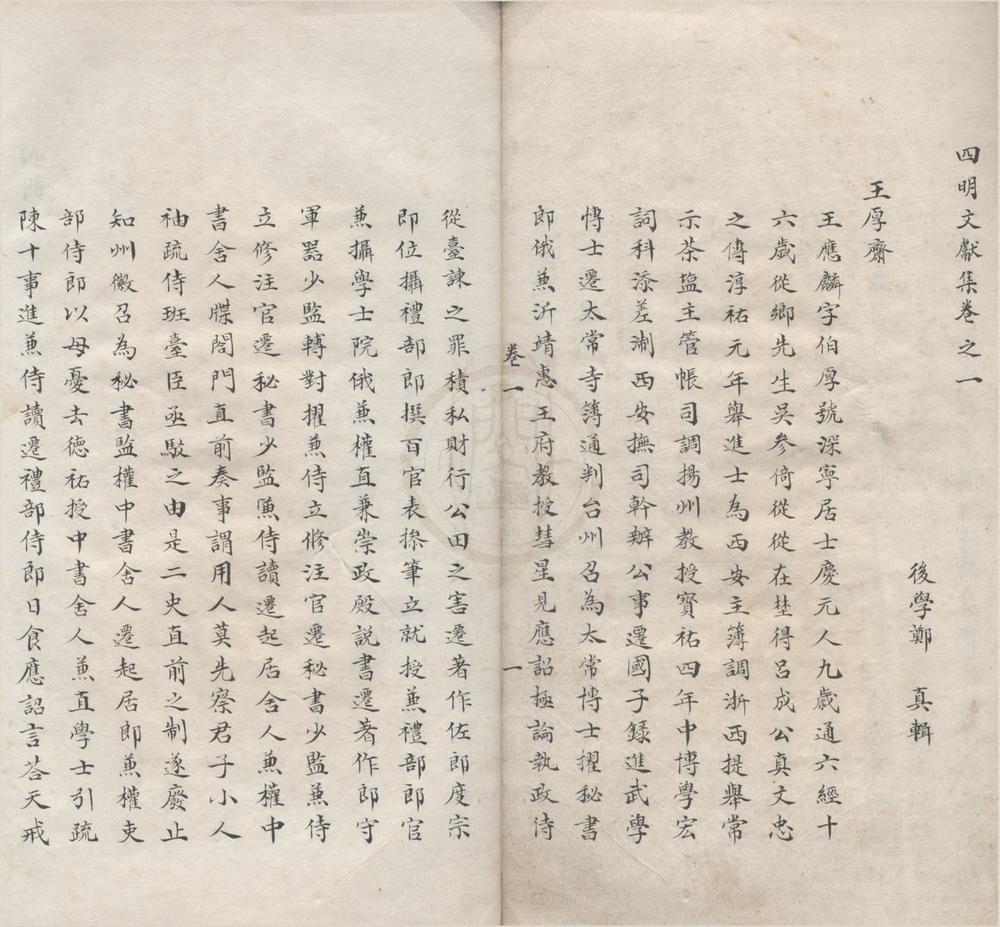 四明文獻集卷之一
後學鄭　真輯
王厚齋
王應麟字伯厚號深寧居士慶元人九歲通六經十
六歲從鄉先生吳參倚從從在埜得呂成公真文忠
之傳淳祐元年舉進士為西安主簿調浙西提舉常
示茶塩主管帳司調揚州教授寶祐四年中博學宏
詞科添差淛西安撫司幹辦公事遷國子錄進武學
博士遷太常寺簿通判台州召為太常博士擢秘書
郎俄兼沂靖惠王府教授彗星見應詔極論執政侍
卷一
一
從臺諫之罪積私財行公田之害遷著作佐郎度宗
即位攝禮部郎撰百官表捴筆立就授兼禮部郎官
兼攝學士院俄兼權直兼崇政殿説書遷著作郎守
軍器少監轉對擢兼侍立修注官遷秘書少監兼侍
立修注官遷秘書少監兼侍讀遷起居舍人兼權中
書舍人牒閤門直前奏事謂用人莫先察君子小人
袖疏侍班臺臣亟駁之由是二史直前之制遂廢止
知州徽召為秘書監權中書舍人遷起居郎兼權吏
部侍郎以母憂去德祐授中書舍人兼直學士引疏
陳十事進兼侍讀遷禮部侍郎日食應詔言荅天戒